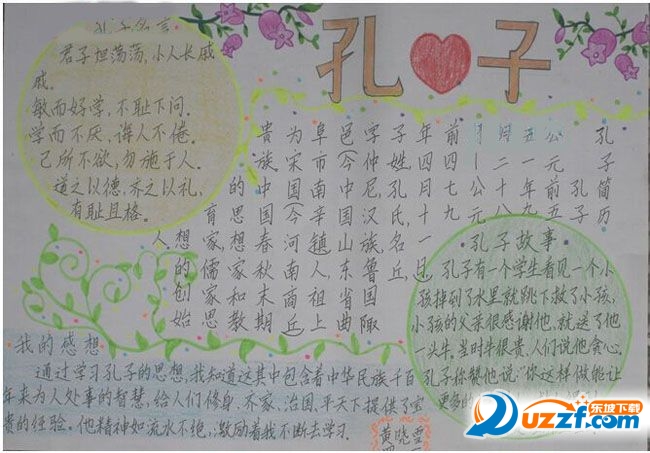 孔子名言
君子坦荡荡,小人长戚
戚。
敏而好学,不耻下问。
学而不厌,诲人不倦。
己所不欲,勿施于人。
道之以德,齐之以礼,
有耻且格。
孔子
孔子简历
孔子
公元前五
五一年九
月二十八
公元
前四七九
年四月十一日
子姓,孔氏,名丘,
字仲尼,汉族,鲁国陬
邑(今中国山东省曲
阜市南辛镇人,祖上
为宋国(今河南商丘
贵族中国春秋末期
的思想家和教
育家,儒家思
想的创始
人
孔子故事
孔子有一个学生看见一个小
孩掉到了水里就跳下救了小孩,
小孩的父亲很感谢他,就送了他
一头牛。当时牛很贵,人们说他贪心。
孔子称赞他说:你这样做能让
更多的
我的感想
通过学习孔子的思想,我知道这其中包含着中华民族千百
年来为人处事的智慧,给人们修身 齐家、治国、平天下提供了宝
贵的经验。他精神如流水不绝,激励着我不断去学习.
黄晓雪
东坡下载
uzzf.com